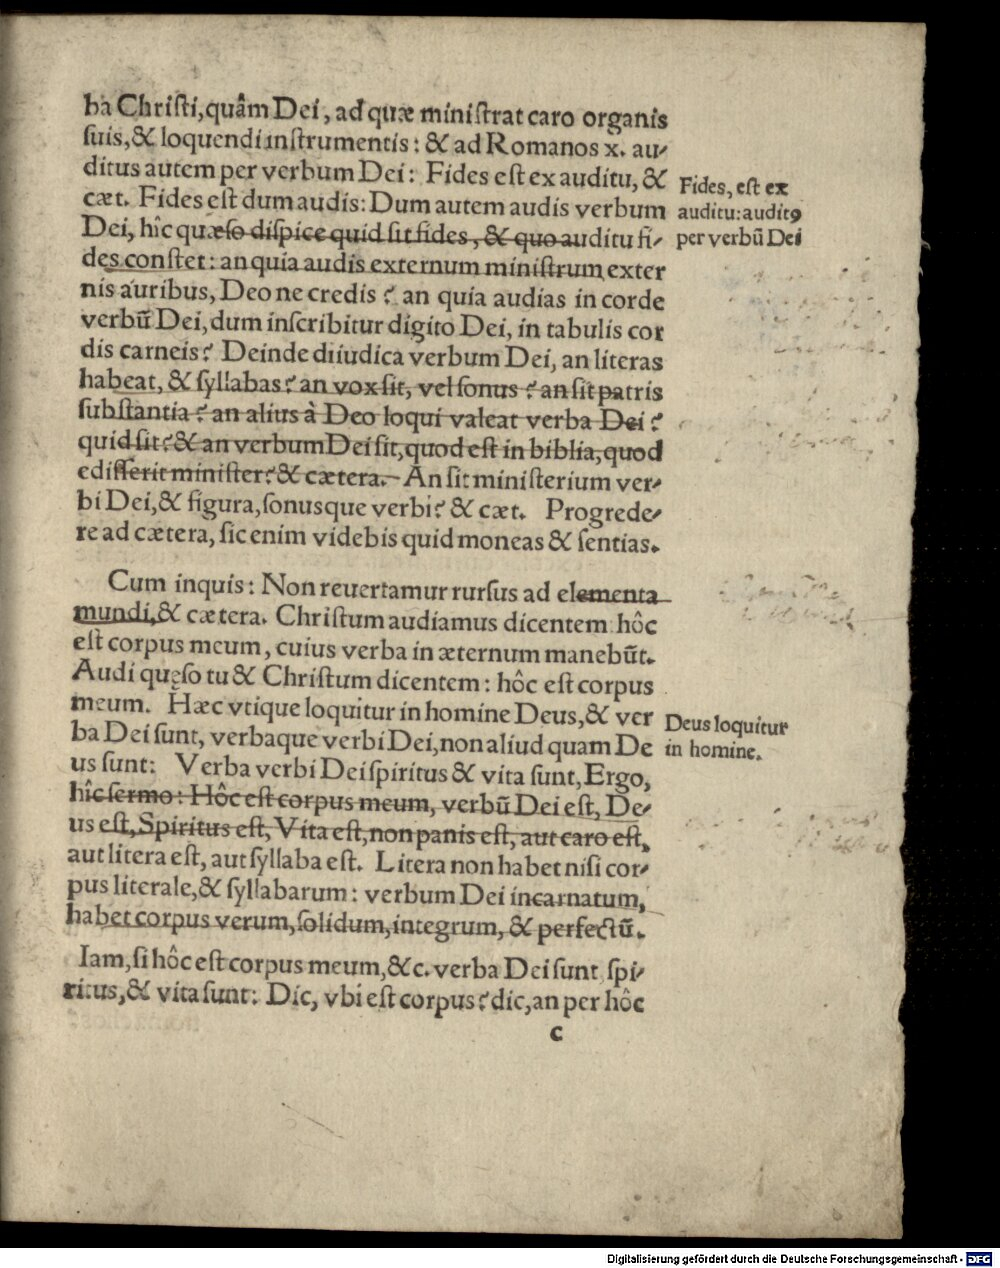 ba Christi, quâm Dei, ad quæ ministrat caro organis
suis, & loquendi instrumentis: & ad Romanos x. au-
ditus autem per verbum Dei: Fides est ex auditu, &
cæt. Fides est dum audis: Dum autem audis verbum
Dei, hîc quæso dispice quid sit fides, & quo auditu fi-
des constet: an quia audis externum ministrum exter
nis auribus, Deo ne credis? an quia audias in corde
verbũ Dei, dum inscribitur digito Dei, in tabulis cor
dis carneis? Deinde diiudica verbum Dei, an literas
habeat, & syllabas? an vox sit, vel sonus? an sit patris
substantia? an alius à Deo loqui valeat verba Dei?
quid sit? & an verbum Dei sit, quod est in biblia, quod
edisserit minister? & cætera. An sit ministerium ver-
bi Dei, & figura, sonusque verbi? & cæt. Progrede-
re ad cætera, sic enim videbis quid moneas & sentias.
Fides, est ex
auditu: auditꝰ
per verbũ Dei
Cum inquis: Non reuertamur rursus ad elementa
mundi, & cætera. Christum audiamus dicentem hôc
est corpus meum, cuius verba in æternum manebũt.
Audi quęso tu & Christum dicentem: hôc est corpus
meum. Hæc vtique loquitur in homine Deus, & ver
ba Dei sunt, verbaque verbi Dei, non aliud quam De
us sunt: Verba verbi Dei spiritus & vita sunt, Ergo,
hîc sermo: Hôc est corpus meum, verbũ Dei est, De-
us est, Spiritus est, Vita est, non panis est, aut caro est,
aut litera est, aut syllaba est. Litera non habet nisi cor-
pus literale, & syllabarum: verbum Dei incarnatum,
habet corpus verum, solidum, integrum, & perfectũ.
Deus loquitur
in homine.
Iam, si hôc est corpus meum, &c. verba Dei sunt spi-
ritus, & vita sunt: Dic, vbi est corpus? dic, an per hôc
c
Digitalisierung gefördert durch die Deutsche Forschungsgemeinschaft - DFG